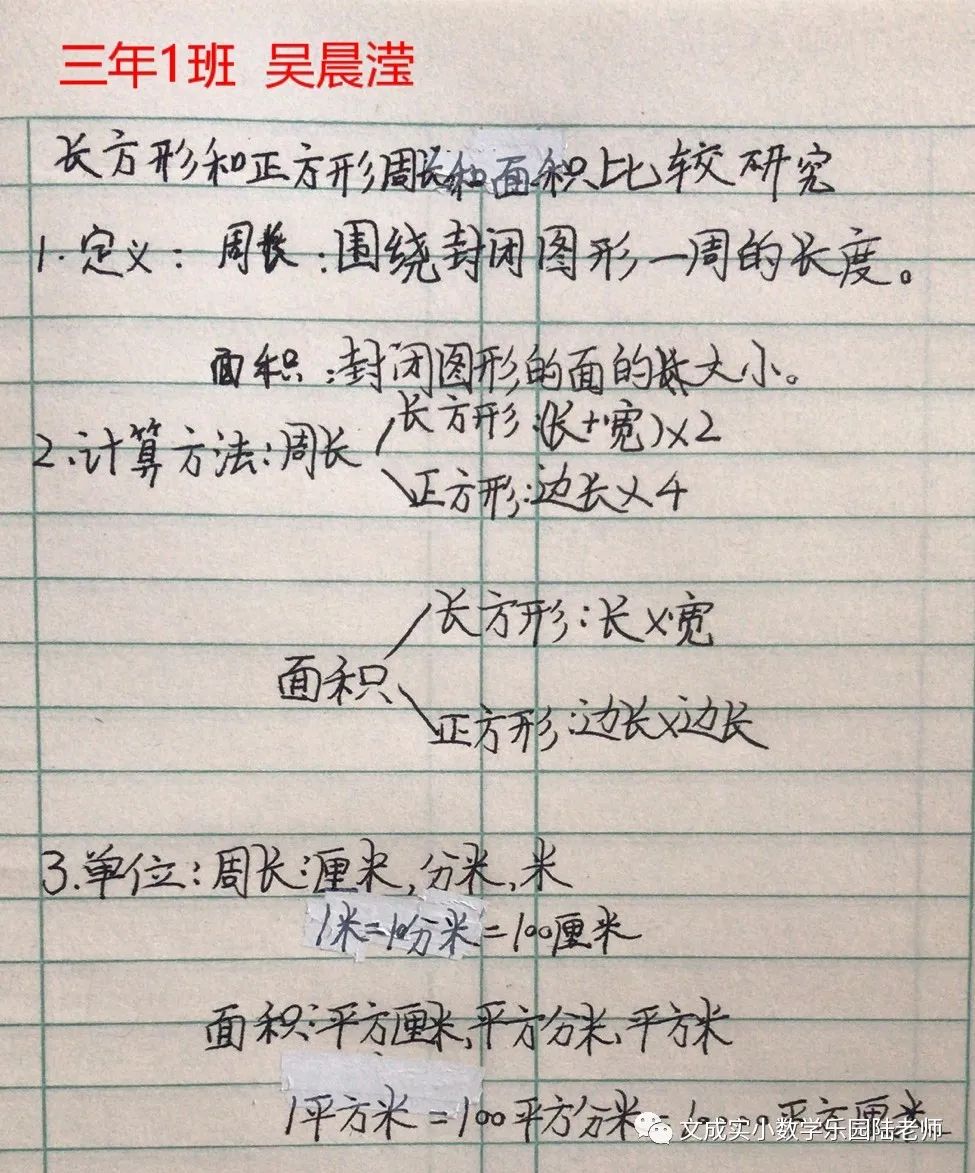 三年1班 吴晨滢
长方形和正方形周长和面积比较研究
1.定义:周长:围绕封闭图形一周的长度。
面积:封闭图形的面的大小。
长方形:(长+宽)×2
2.计算方法:周长
正方形:边长×4
长方形:长×宽
面积
正方形:边长×边长
3.单位:周长:厘米,分米,米
1米=10分米=100厘米
面积:平方厘米,平方分米,平方米
1平方米=100平方分米=10000平方厘米
文成实小数学乐园陆老师